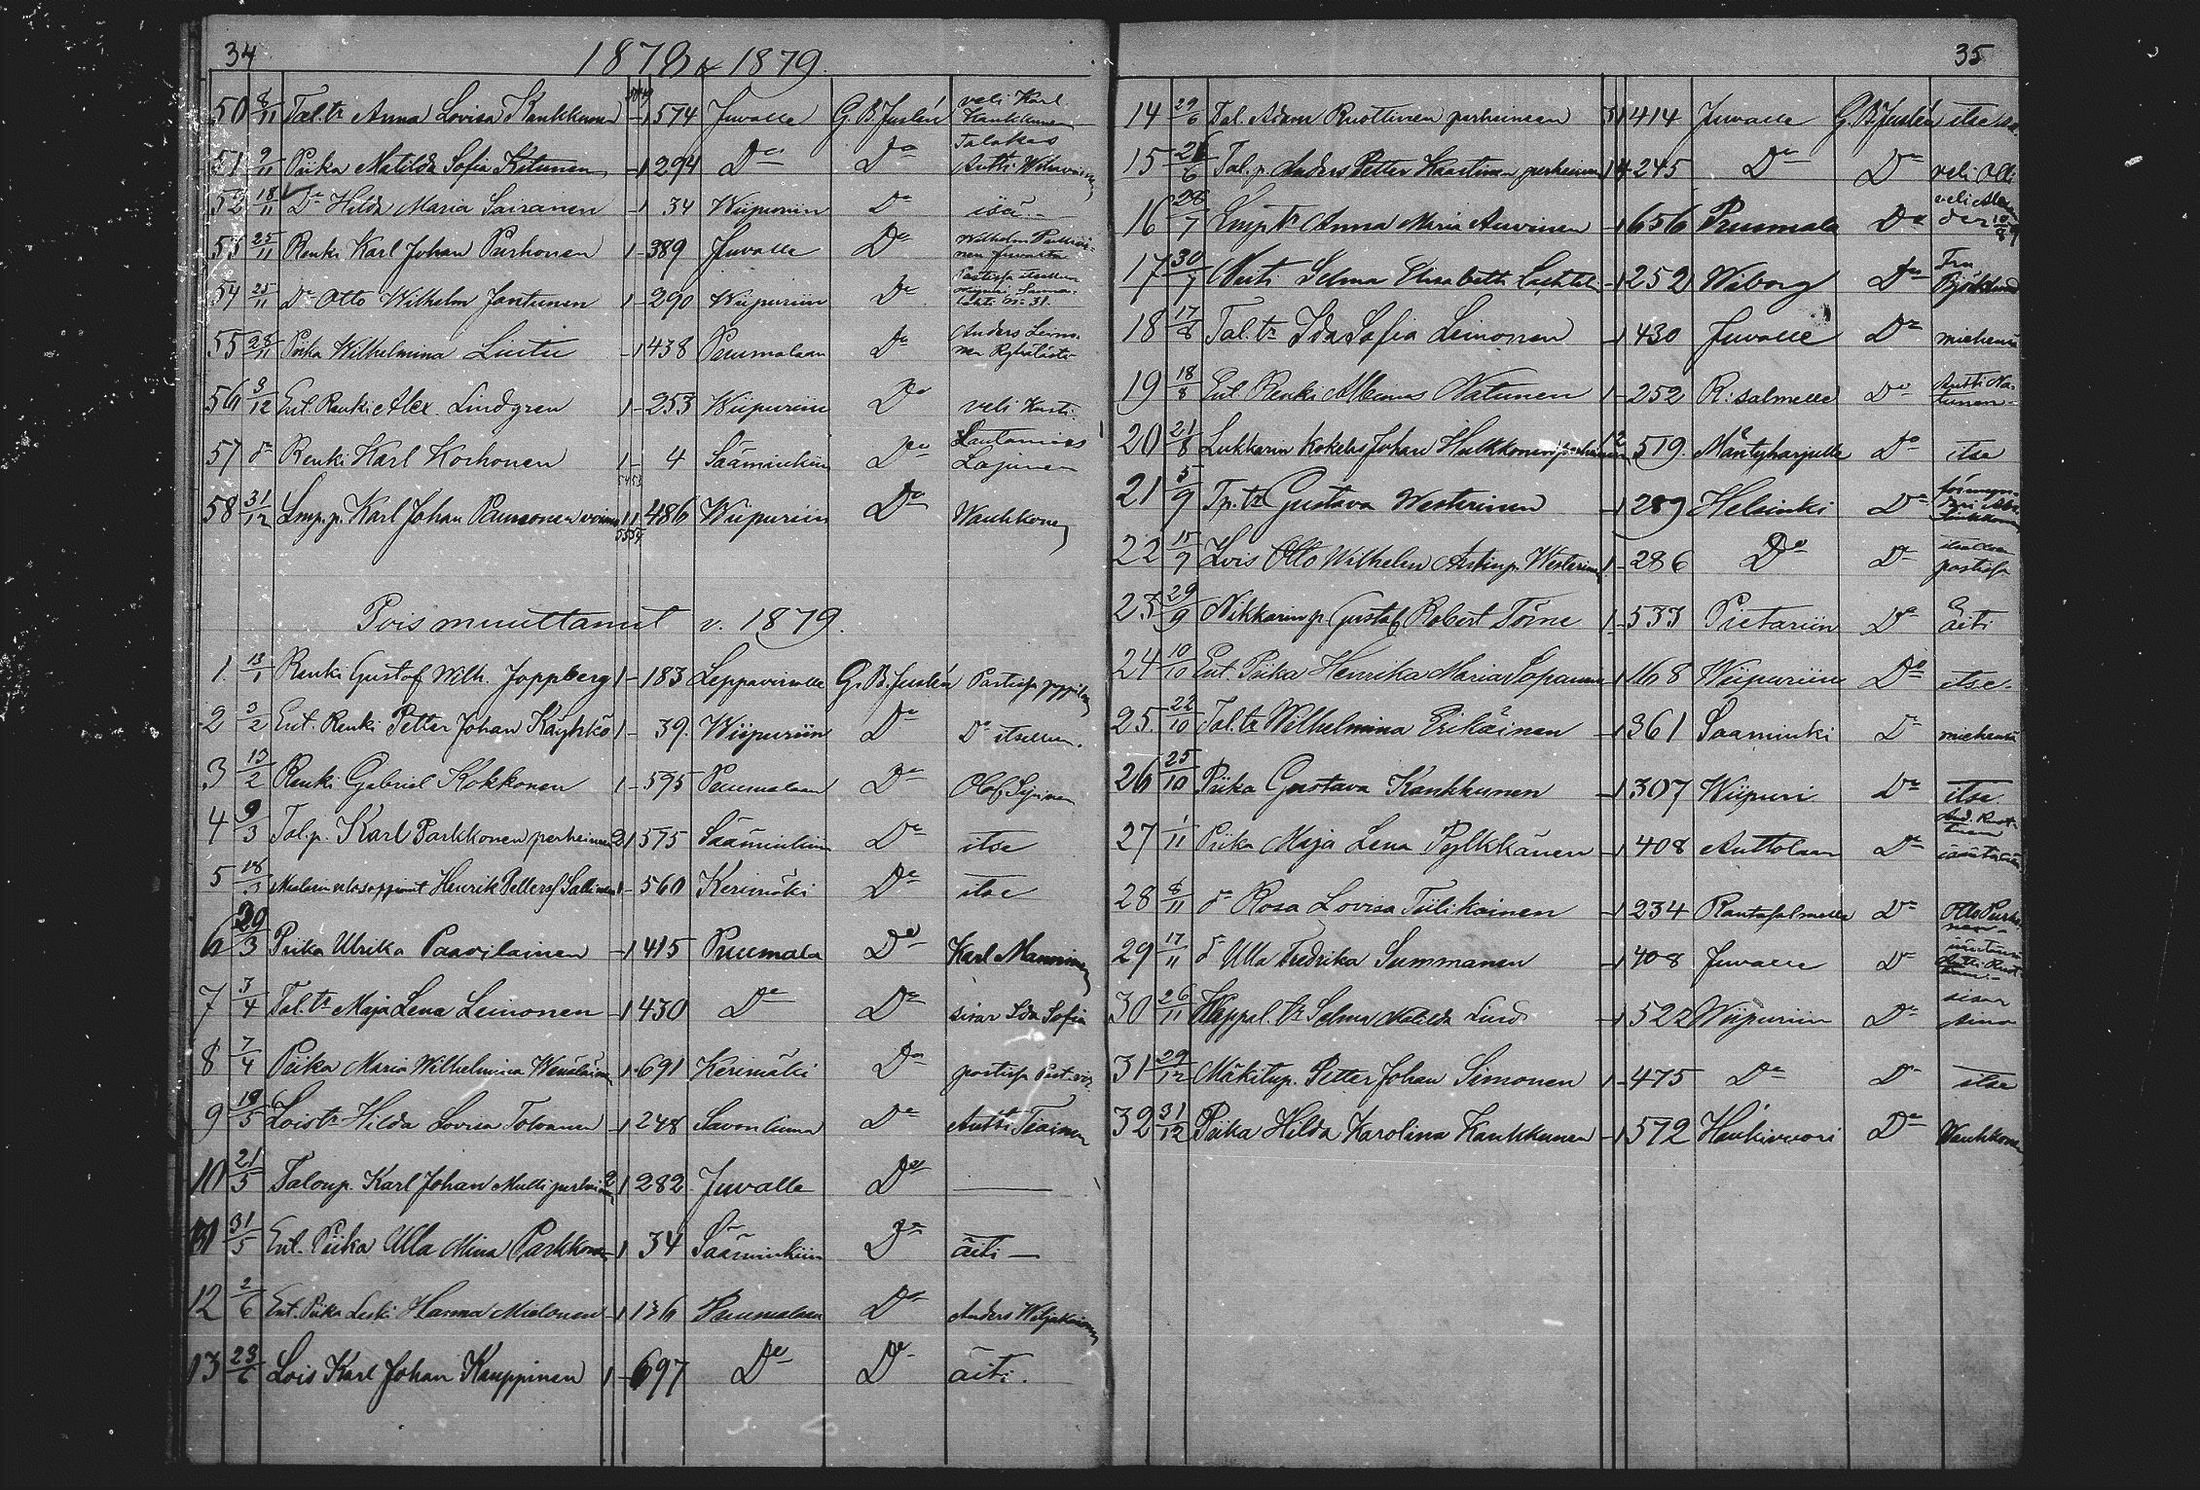 34
1878 & 1879.
50 8/11 Tal. tr Anna Lovisa Kaukkunen -1 574 Juvalle G B Juslén veli Karl Kaukkunen
51 9/11 Piika Matilda Sofia -1 294 Do Do Talokas Antti
52 18/11 Do Hilda Maria Sairanen -1 34 Wiipuriin Do isä
53 25/11 Renki Karl Johan Purhonen 1- 389 Juvalle Do Wilhelm
54 25/11 Do Otto Wilhelm Jantunen 1- 290 Wiipuriin Do
55 25/11 Piika Wilhelmina Liutu -1 438 Puumalaan Do Anders
56 3/12 Ent. Renki Alex. Lindgren 1- 253 Wiipuriin Do veli Kusti
57 do Renki Karl Korhonen 1- 4 Sääminkiin Do Lautamies Lajunen
58 31/12 Lmp. p. Karl Johan Paunonen 11 486 Wiipuriin Do Waukkonen
Pois muuttanut v. 1879.
1. 13/1 Renki Gustof Wilh. Joppberg 1- 183 Leppävirralle G. B. Juslén Postissa
2 3/2 Ent. Renki Petter Johan Käyhkö 1- 39. Wiipuriin Do Do itsellen.
3 13/2 Renki Gabriel Kokkonen 1- 595 Puumalaan Do Olof
4 9/3 Tal. p. Karl Parkkonen perheineen 21 575 Sääminkiin Do itse
5 18/3 Henrik Pellers/Sallinen 1- 560 Kerimäki Do itse
6 29/3 Piika Ulrika Paavilainen -1 415 Puumala Do Karl Manninen
7 3/4 Tal. tr Maja Lena Leinonen -1 430 Do Do sisar Ida Sofia
8 7/4 Piika Maria Wilhelmina Wenäläinen 1 691 Kerimäki Do postissa
9 19/5 Lois tr Hilda Lovisa Tolvanen -1 248 Savonlinna Do Antti Tiainen
10 21/5 Taloup. Karl Johan Multi 21 282 Juvalle Do —
11 31/5 Ent. Piika Ulla Mina Parkkonen -1 34 Sääminkiin Do äiti —
12 2/6 Ent. Piika Leski Hanna Mielonen -1 136 Puumalaan Do Anders Wiljakainen
13 23/6 Lois Karl Johan Kauppinen 1- 697 Do Do äiti.
35
14 29/6 Tal. Adam Ruottinen perheineen 51 414 Juvalle G. B Juslén itse
15 26/6 Tal. p. Anders Petter Kaartinen perheineen 14 245 Do Do veli Olli
16 28/7 Lmp tr Anna Maria Auvinen -1 656 Puumala Do veli
17 30/7 Neiti Selma Elisabeth -1 252 Wiborg Do Fru Björklund
18 17/8 Tal. tr Ida Sofia Leinonen -1 430 Juvalle Do miehensä
19 18/8 Ent Renki Albinus Natunen 1- 252 R:salmelle Do Antti Natunen
20 21/8 Lukkarin Kokelas Johan Hulkkonen 12 519. Mäntyharjulle Do itse
21 5/9 Tp. tr Gustava Westerinen -1 289 Helsinki Do
22 15/9 Lois Otto Wilhelm Westerinen 1- 286 Do Do itsellen postissa
23 29/9 Nikkarin p. Gustaf Robert Törne 1- 533 Pietariin Do Äiti
24 10/10 Ent. Piika Henrika Maria Sopanen -1 168 Wiipuriin Do itse.
25. 22/10 Tal. tr Wilhelmina Eriläinen -1 361 Sääminki Do miehensä
26 25/10 Piika Gustava Kaukkunen -1 307 Wiipuri Do itse
27 1/11 Piika Maja Lena Pylkkänen -1 408 Anttolaan Do isäntänsä
28 8/11 do Rosa Lovisa Tiilikainen -1 234 Rantasalmella Do Otto
29 17/11 do Ulla Fredrika Summanen -1 408 Juvalle Do
30 26/11 Kappal. tr Selma Matilda Lind -1 522 Wiipuriin Do sisar Aina
31 29/12 Mäkitup. Petter Johan Simonen 1- 475 Do Do itse
32 31/12 Piika Hilda Karolina Kaukkunen -1 572 Haukivuori Do Waukkonen